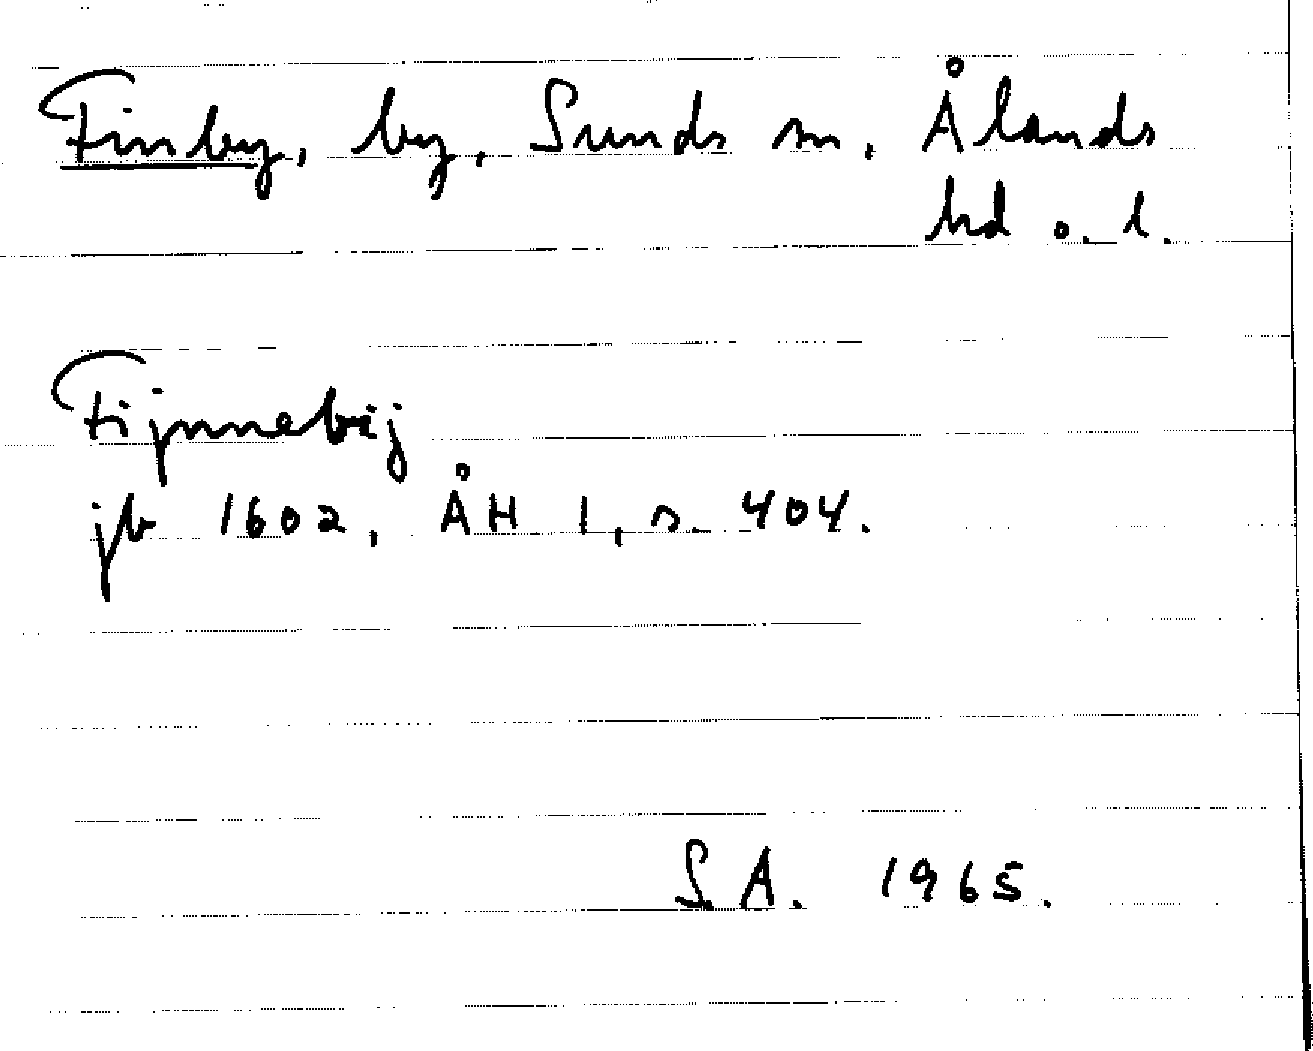 Finby, by, Sunds sn, Ålands
hd o. l.
Fijnnebij
jb 1602, ÅH 1, s. 404.
S.A. 1965.